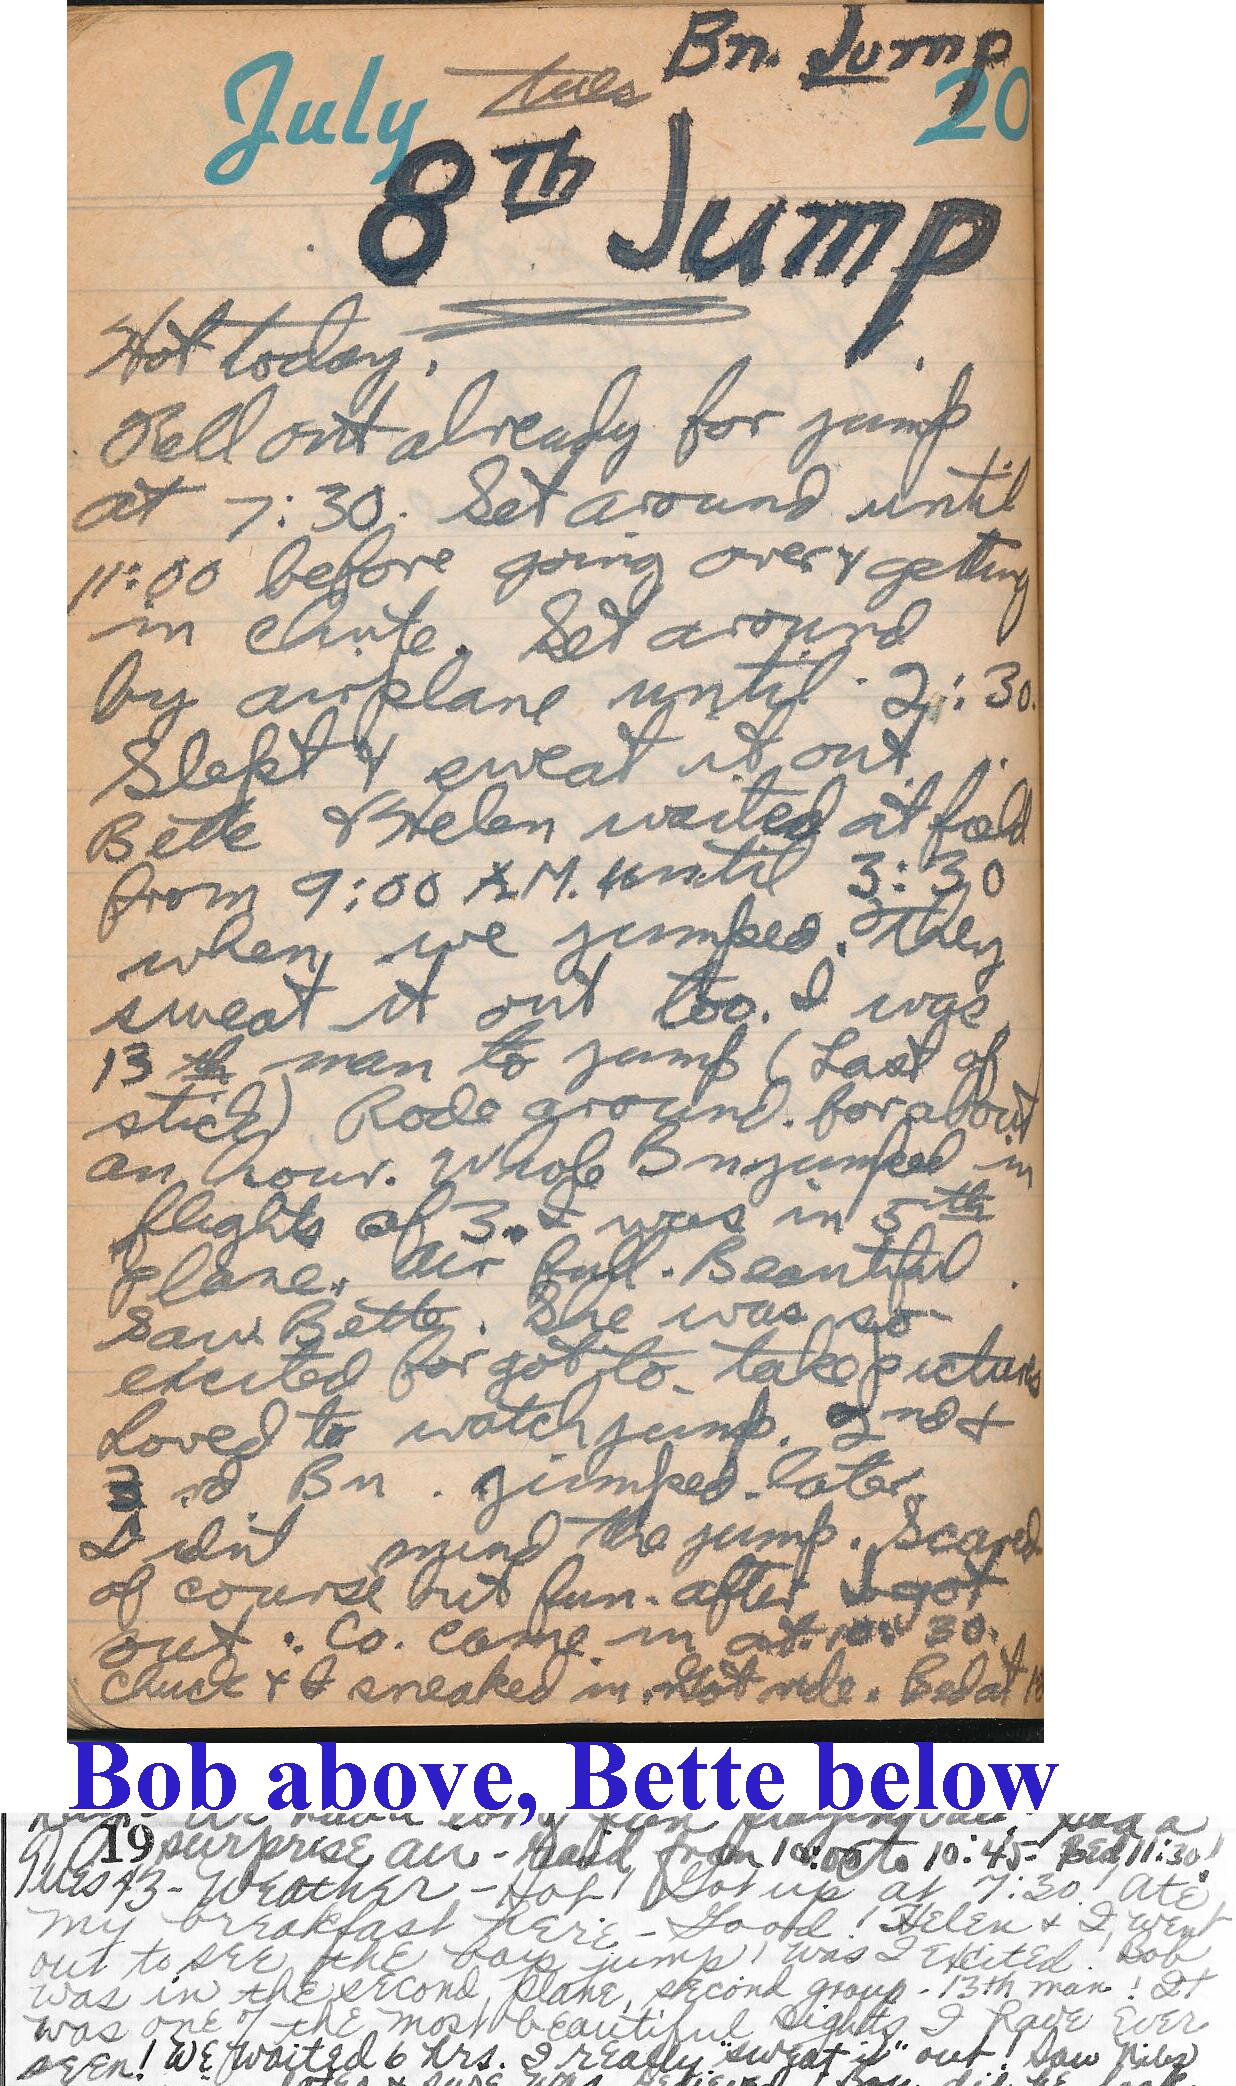 Bn. Jump
July tues 20
8th Jump
Hot today.
Fell out already for jump
at 7:30. Set around until
11:00 before going over & getting
in chute. Set around
by airplane until 2:30.
Slept & sweat it out.
Bette & Helen waited at field
from 9:00 A.M. until 3:30
when we jumped. They
sweat it out too. I was
13th man to jump (Last of
stick). Rode around for about
an hour. Whole Bn jumped in
flights of 3. I was in 5th
plane. Air full. Beautiful.
Saw Bette. She was so
excited forgot to take pictures
Loved to watch jump. 2nd &
3rd Bn. jumped later.
Didn't mind the jump. Scared
of course but fun after I got
out. Co. came in at 10:30.
Chuck & I sneaked in. Got ride. Bed at
Bob above, Bette below
fun playing had a
19 surprise air-raid from 10:00 to 10:45- Bed 11:30!
Tues 43- Weather - Hot! Got up at 7:30! Ate
my breakfast here - Good! Helen & I went
out to see the boys jump! Was I Excited! Bob
was in the second plane, second group - 13th man! It
was one of the most beautiful sights I have ever
seen! We waited 6 hrs. I really "sweat it" out! Saw